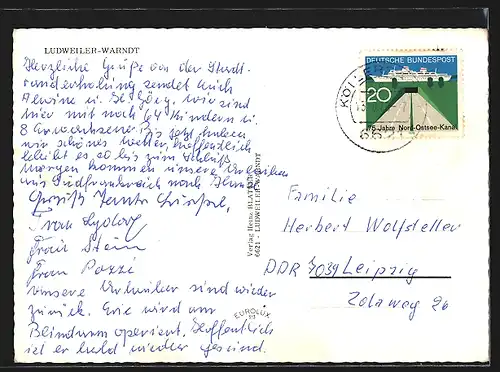 LUDWEILER-WARNDT
Herzliche Grüße von der Stadt-
randerholung sendet Euch
wir sind
hier mit noch 64 Kindern u.
8 Erwachsene. Bis jetzt haben
wir schönes Wetter, hoffentlich
bleibt es so bis zum Schluß
Morgen kommen unsere Urlauber
aus Südfrankreich nach Hause
Gruß
Frau Stein
Frau
Unsere Urlauber sind wieder
zurück. Eric wird am
Blinddarm operiert. Hoffentlich
ist er bald wieder gesund.
Verlag Heinz
6621 - LUDWEILER-WARNDT
EUROLUX
DEUTSCHE BUNDESPOST
20
75 Jahre Nord-Ostsee-Kanal
Familie
Herbert Wolfsteller
DDR 7039 Leipzig
Zolaweg 26